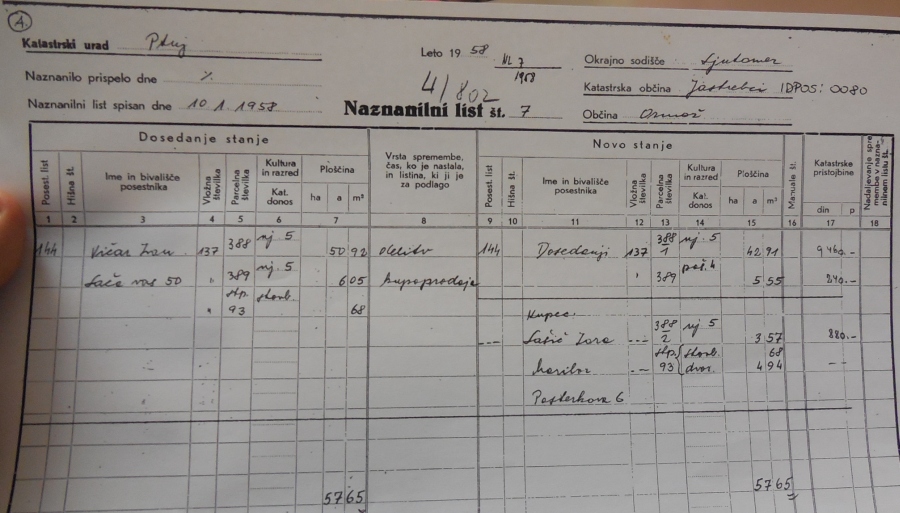 A.
Katastrski urad Ptuj
Naznanilo prispelo dne %
Naznanilni list spisan dne 10.1.1958
Leto 1958
NL 7
1958
4/802
Naznanilni list št. 7
Okrajno sodišče Ljutomer
Katastrska občina Jastrebci IDPOS: 0080
Občina Ormož
Dosedanje stanje
Novo stanje
Posest. list
Hišna št.
Ime in bivališče posestnika
Vložna številka
Parcelna številka
Kultura in razred
Kat. donos
Ploščina
ha a m²
Vrsta spremembe, čas, ko je nastala, in listina, ki ji je za podlago
Posest. list
Hišna št.
Ime in bivališče posestnika
Vložna številka
Parcelna številka
Kultura in razred
Kat. donos
Ploščina
ha a m²
Manuale št.
Katastrske pristojbine
din p
Nadaljevanje spremembe v naznanilnem listu št.
1 2 3 4 5 6 7 8 9 10 11 12 13 14 15 16 17 18
144 Vičar Ivan 137 388 nj. 5 50 92 delitev 144 Dosedanji 137 388/1 nj. 5 42 91 9460.-
vas 50 " 389 nj. 5 6 05 kupoprodaja " 389 paš. 4 5 55 240.-
stp. 93 stavb. 68
Kupec:
--- Zora --- 388/2 nj 5 3 57 880.-
stp. 93 stavb. 68
Maribor -- dvor. 4 94 --
6
57 65
57 65